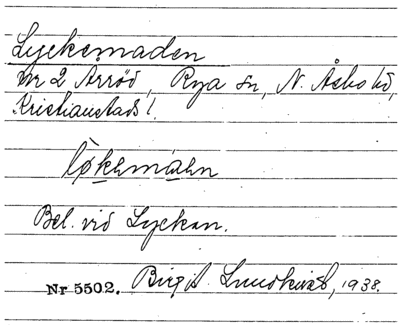 Lyckemaden
nr 2 Arröd, Rya sn, N. Åsbo hd,
Kristianstads l.
lø̀kemàen
Bel. vid Lyckan.
Nr 5502. Birgit Lundkvist, 1938.